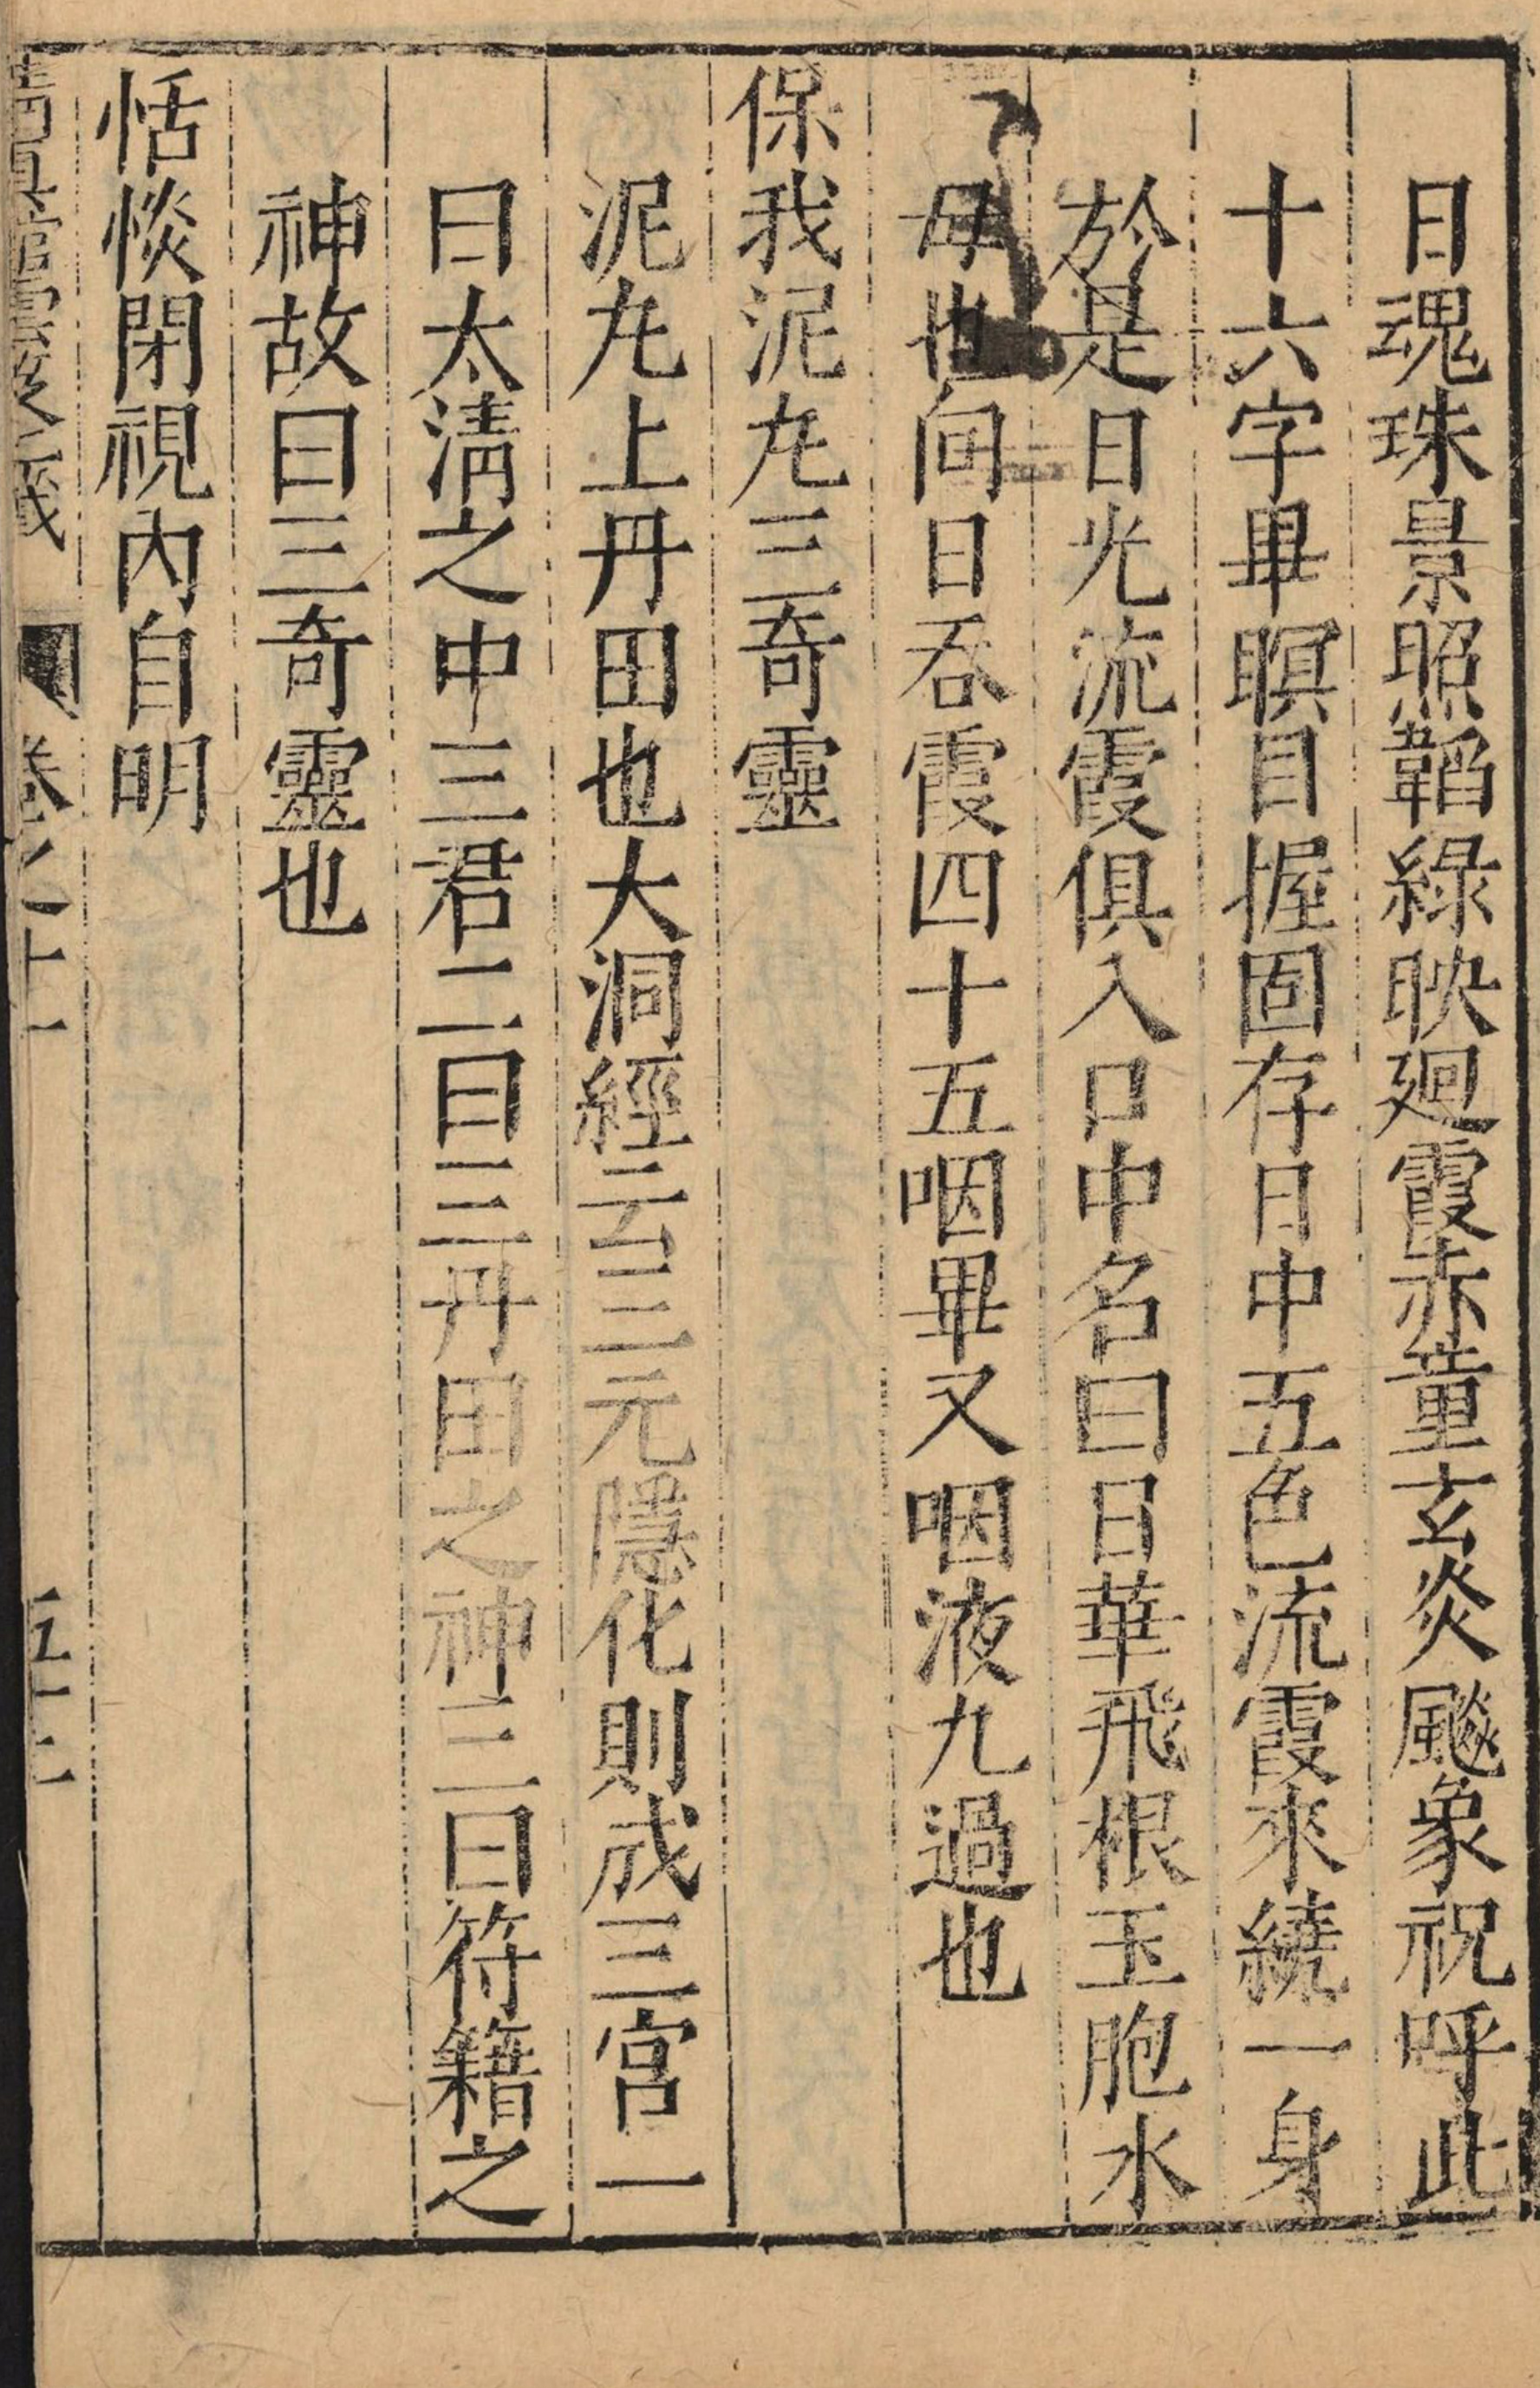 日魂珠景照韜綠映廻霞赤童玄炎飈象祝呼此
十六字畢瞑目握固存日中五色流霞來繞一身
於是日光流霞俱入口中名曰日華飛根玉胞水
母也向日吞霞四十五咽畢又咽液九過也
保我泥丸三奇靈
泥丸上丹田也大洞經云三元隱化則成三宮一
曰太淸之中三君二曰三丹田之神三曰符籍之
神故曰三奇靈也
恬惔閉視內自明
卷之十一
五十二